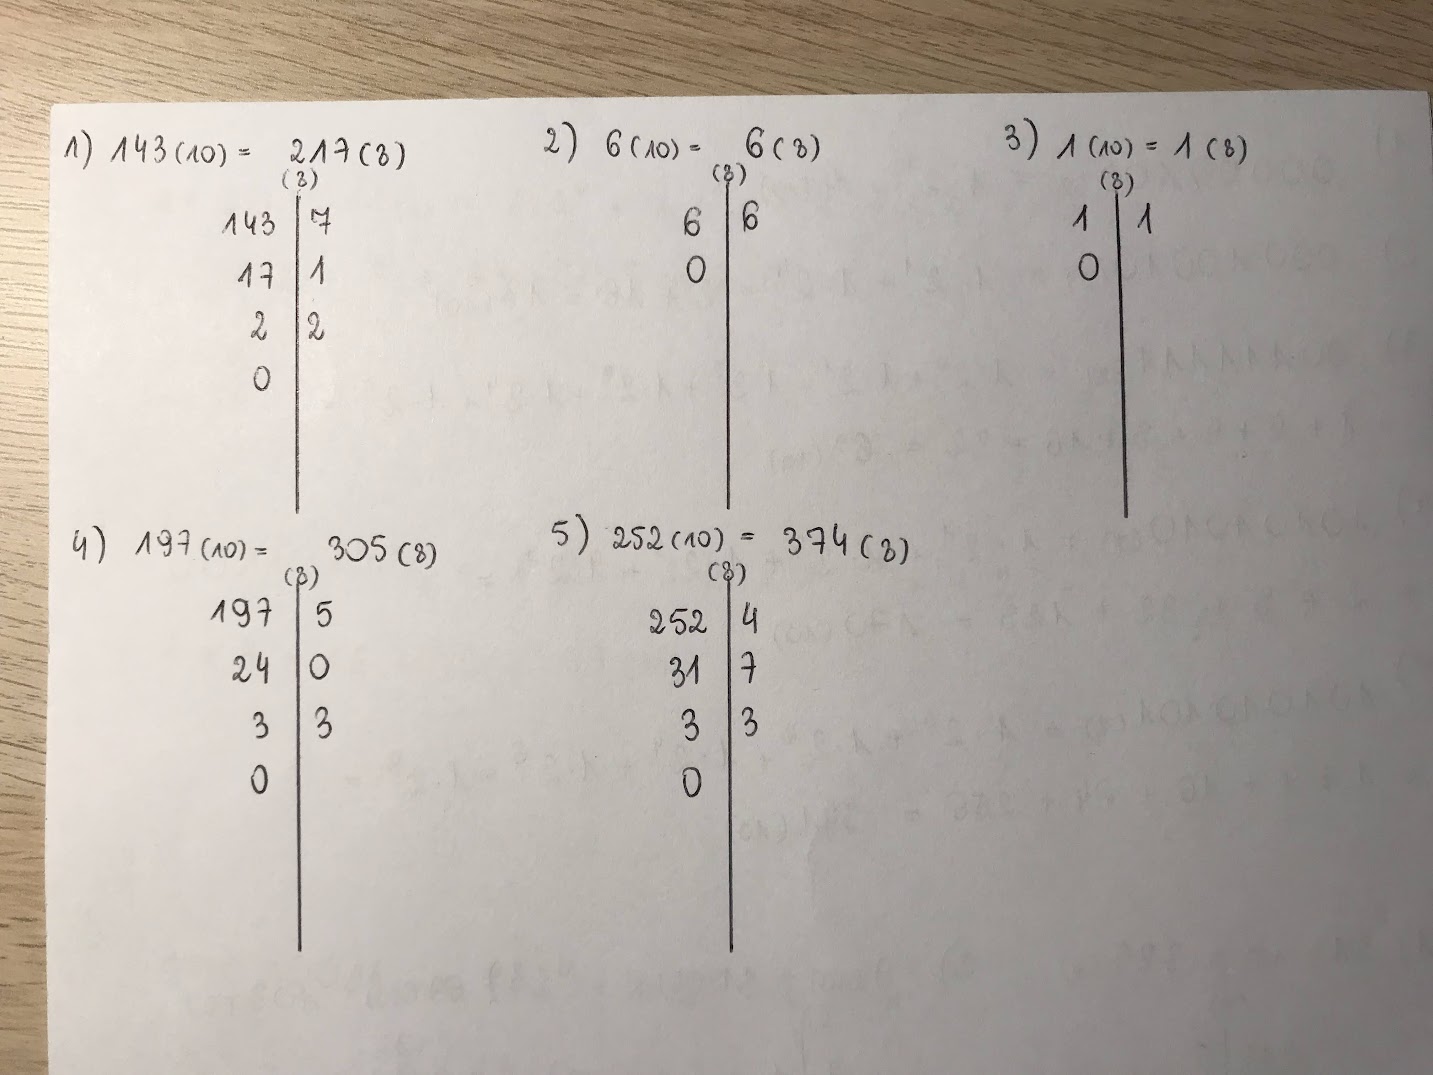 1) 143(10) = 217(8)
(8)
143 7
17 1
2 2
0
2) 6(10) = 6(8)
(8)
6 6
0
3) 1(10) = 1(8)
(8)
1 1
0
4) 197(10) = 305(8)
(8)
197 5
24 0
3 3
0
5) 252(10) = 374(8)
(8)
252 4
31 7
3 3
0